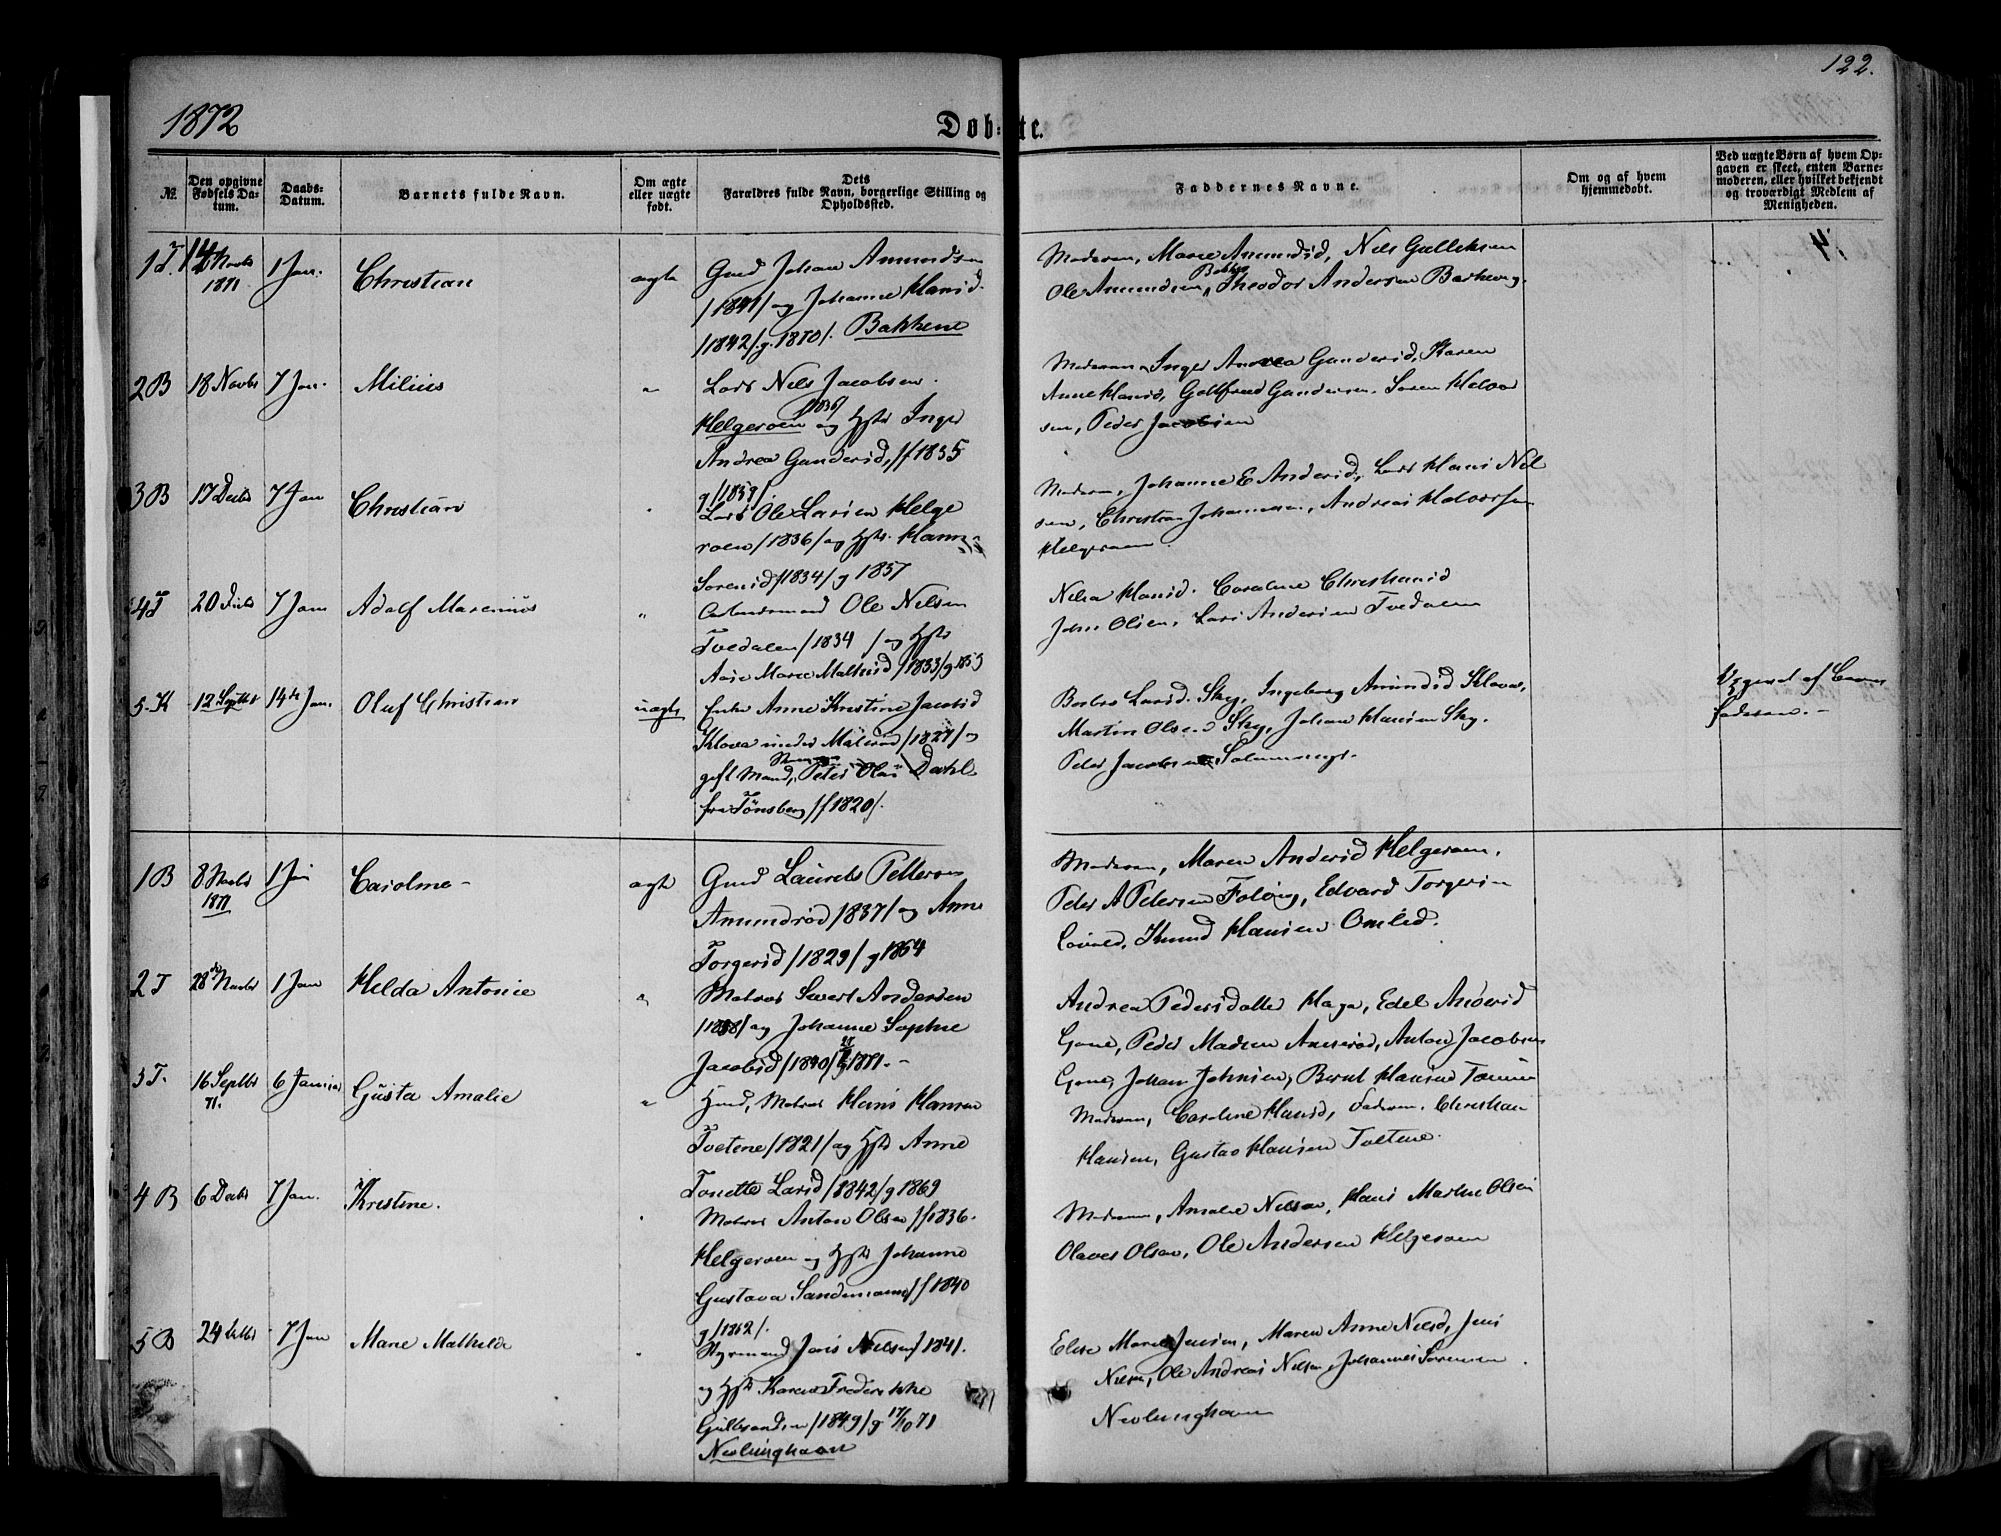 122.
1872
Døb-te.
№.
Den opgivne Fødsels Datum.
Daabs-Datum.
Barnets fulde Navn.
Om ægte eller uægte født.
Dets Forældres fulde Navn, borgerlige Stilling og Opholdssted.
Faddernes Navne.
Om og af hvem hjemmedøbt.
Ved uægte Børn af hvem Opgaven er skeet, enten Barnemoderen, eller hvilket bekjendt og troværdigt Medlem af Menigheden.
1871
1 Jan.
Christian
ægte
Gmd Johan Amundsen
/1841/ og Johanne Hansd.
1842/. g. 1870/. Bakkene
Moderen, Marie Amundsd, Nils Gulliksen
Ole Amundsen, Theodor Andersen Barkevig.
2 B
18 Novbr
7 Jan.
Milius
"
Lods Nils Jacobsen
Helgeroen 1836/ og Hstr Inger
Andrea Gundersd, /f 1835
g/1859/.
Moderen, Inger Andrea Gundersd, Karen
Anne Hansd, Gottfred Gundersen, Søren Halvor
sen, Peder Jacobsen
3 B
17 Decbr
7 Jan
Christian
Lods Ole Larsen Helge
roen /1836/ og Hstr. Hanne
Sørensd /1834/ g 1857
Moderen, Johanne E Andersd, Lars Hans Nil
sen, Christian Johannesen, Andreas Halvorsen
Helgeroen.
4 T
20 Decbr
7 Jan
Adolf Marenius
"
Ole Nilsen
Tvedalen /1834 / og Hstr
Maren Mathisd /1833/ g 1853
Hansd. Caroline Christiansd
John Olsen, Lars Andersen Tvedalen
5 K
12 Septbr
14de Jan.
Oluf Christian
uægte
Enke Anne Kristine Jacobsd
Klova under Målerød /1827/ og
gift Mand, Peter Olai Dahl
fra Tönsberg /f 1820/.
Barbro Larsd. Sky, Ingeborg Amundsd Klova,
Martin Olsen Sky, Johan Hansen Sky.
Peder Jacobsen
Opgivet af Barne
faderen.-
1 B
8 Novbr
1871
1 Jan
Caroline-
ægte
Gmd Laurits Pettersen
Amundrød /1837/ og Anne
Torgersd /1829/ g 1854
Moderen, Maren Andersd Helgeroen,
Peder A Pedersen Foldvig, Edvard Torgersen
Knud Hansen Omlid.
2 T
28de Novbr
1 Jan
Helda Antonie
"
Matros Sivert Andersen
/1838/ og Johanne Sophie
Jacobsd /1840/ g 1871.-
Andrea Pedersdatter Haga, Edel Andersd
Gone, Peder Madsen Amundrød, Anton Jacobsen
Gone, Johan Johnsen, Bernt Hansen
3 T.
16 Septbr
71.
6 Januar
Gusta Amalie
"
Hmd, Matros Hans Hansen
Tvetene /1821/ og Hstr Anne
Tonette Larsd /1842/ g 1869
Moderen, Caroline Hansd, Faderen, Christian
Hansen, Gustav Hansen Tvetene.
4 B
6 Decbr
7 Jan.
Kristine.
Matros Anton Olsen /f 1836.
Helgeroen og Hstr Johanne
Gustava Sandemann /f 1840
g /1862/.
Moderen, Amalie Nilsen, Hans Martin Olsen
Olaves Olsen, Ole Andersen Helgeroen
5 B
7 Jan
Marie Mathilde
Styrmand Joris Nielsen /1841.
og Hstr Karen Frederikke
Gulbrandsen /1849/ g 17/10 71
Nevlunghavn
Elise Marie Jensen, Maren Anne Nilsd, Jens
Nilsen, Ole Andreas Nilsen, Johannes Sørensen
Nevlunghavn